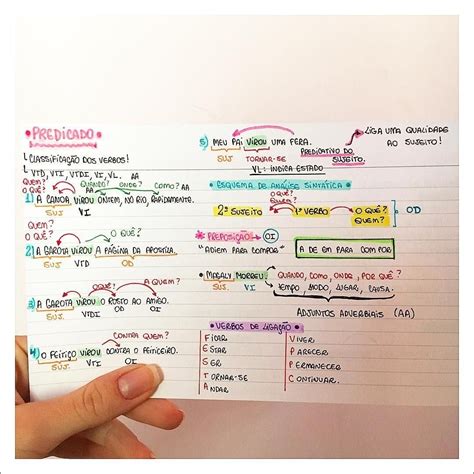 • PREDICADO •
CLASSIFICAÇÃO DOS VERBOS!
VTD, VTI, VTDI, VI, VL. AA
QUEM?
O QUÊ? QUANDO? ONDE? COMO? AA
1) A CANOA VIROU ONTEM, NO RIO, RAPIDAMENTE.
SUJ. VI
QUEM?
O QUÊ? O QUÊ?
2) A GAROTA VIROU A PÁGINA DA APOSTILA.
SUJ. VTD OD
O QUÊ? A QUEM?
3) A GAROTA VIROU O ROSTO AO AMIGO.
SUJ. VTDI OD OI
CONTRA QUEM?
4) O FEITIÇO VIROU CONTRA O FEITICEIRO.
SUJ. VTI OI
5) MEU PAI VIROU UMA FERA.
SUJ TORNAR-SE PREDICATIVO DO SUJEITO.
VL: INDICA ESTADO
LIGA UMA QUALIDADE AO SUJEITO!
• ESQUEMA DE ANÁLISE SINTÁTICA •
2º SUJEITO 1º VERBO O QUÊ? QUEM? OD
• PREPOSIÇÃO OI
"ADIEM PARA COMPOR" A DE EM PARA COM POR
• MAGALY MORREU: QUANDO, COMO, ONDE, POR QUÊ?
SUJ VI TEMPO, MODO, LUGAR, CAUSA.
ADJUNTOS ADVERBIAIS (AA)
• VERBOS DE LIGAÇÃO
FICAR VIVER
ESTAR PARECER
SER PERMANECER
TORNAR-SE CONTINUAR.
ANDAR